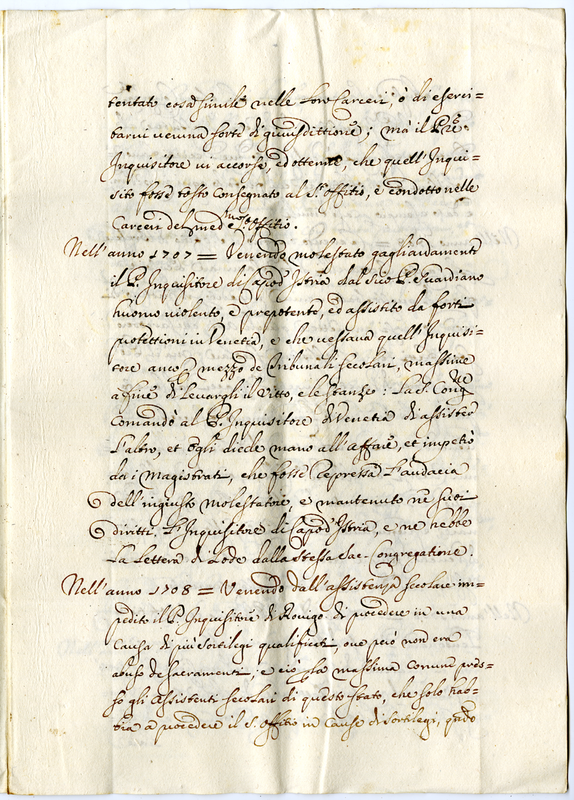 tentato cosa simile nelle loro Carceri, ò di eserci=
tarvi veruna sorte di giurisdittione; mà il Pre
Inquisitore vi accorse, ed ottenne, che quell'Inqui=
sito fosse tosto consegnato al S. offitio, e condotto nelle
Carceri del med.mo S. offitio.
Nell'anno 1707 = Venendo molestato gagliardamente
il P. Inquisitore di Capod'Istria dal suo P. Guardiano
huomo violento, e prepotente, ed assistito da forti
protettioni in Venetia, e che vessava quell'Inquisi=
tore anco mezzo de Tribunali secolari, massime
a fine di levargli il Vitto, e le stanze: La S. Congne
Comandò al P. Inquisitore di Venetia di assister
l'altro, et egli diede mano all'affare, et impetrò
da i Magistrati, che fosse repressa l'audacia
dell'ingiusto molestatore, e mantenuto ne suoi
diritti l'Inquisitore di Capod'Istria, e ne hebbe
la lettera di lode dalla stessa Sac. Congregatione.
Nell'anno 1708 = Venendo dall'assistenza secolare im=
pedito il P. Inquisitore di Rovigo di procedere in una
Causa di più sortilegi qualificati, ove però non era
abuso de sacramenti, e ciò la massima comune pres=
so gli Assistenti secolari di questo stato, che solo hab=
bia a procedere il S. offitio in Cause di sortilegi, qndo